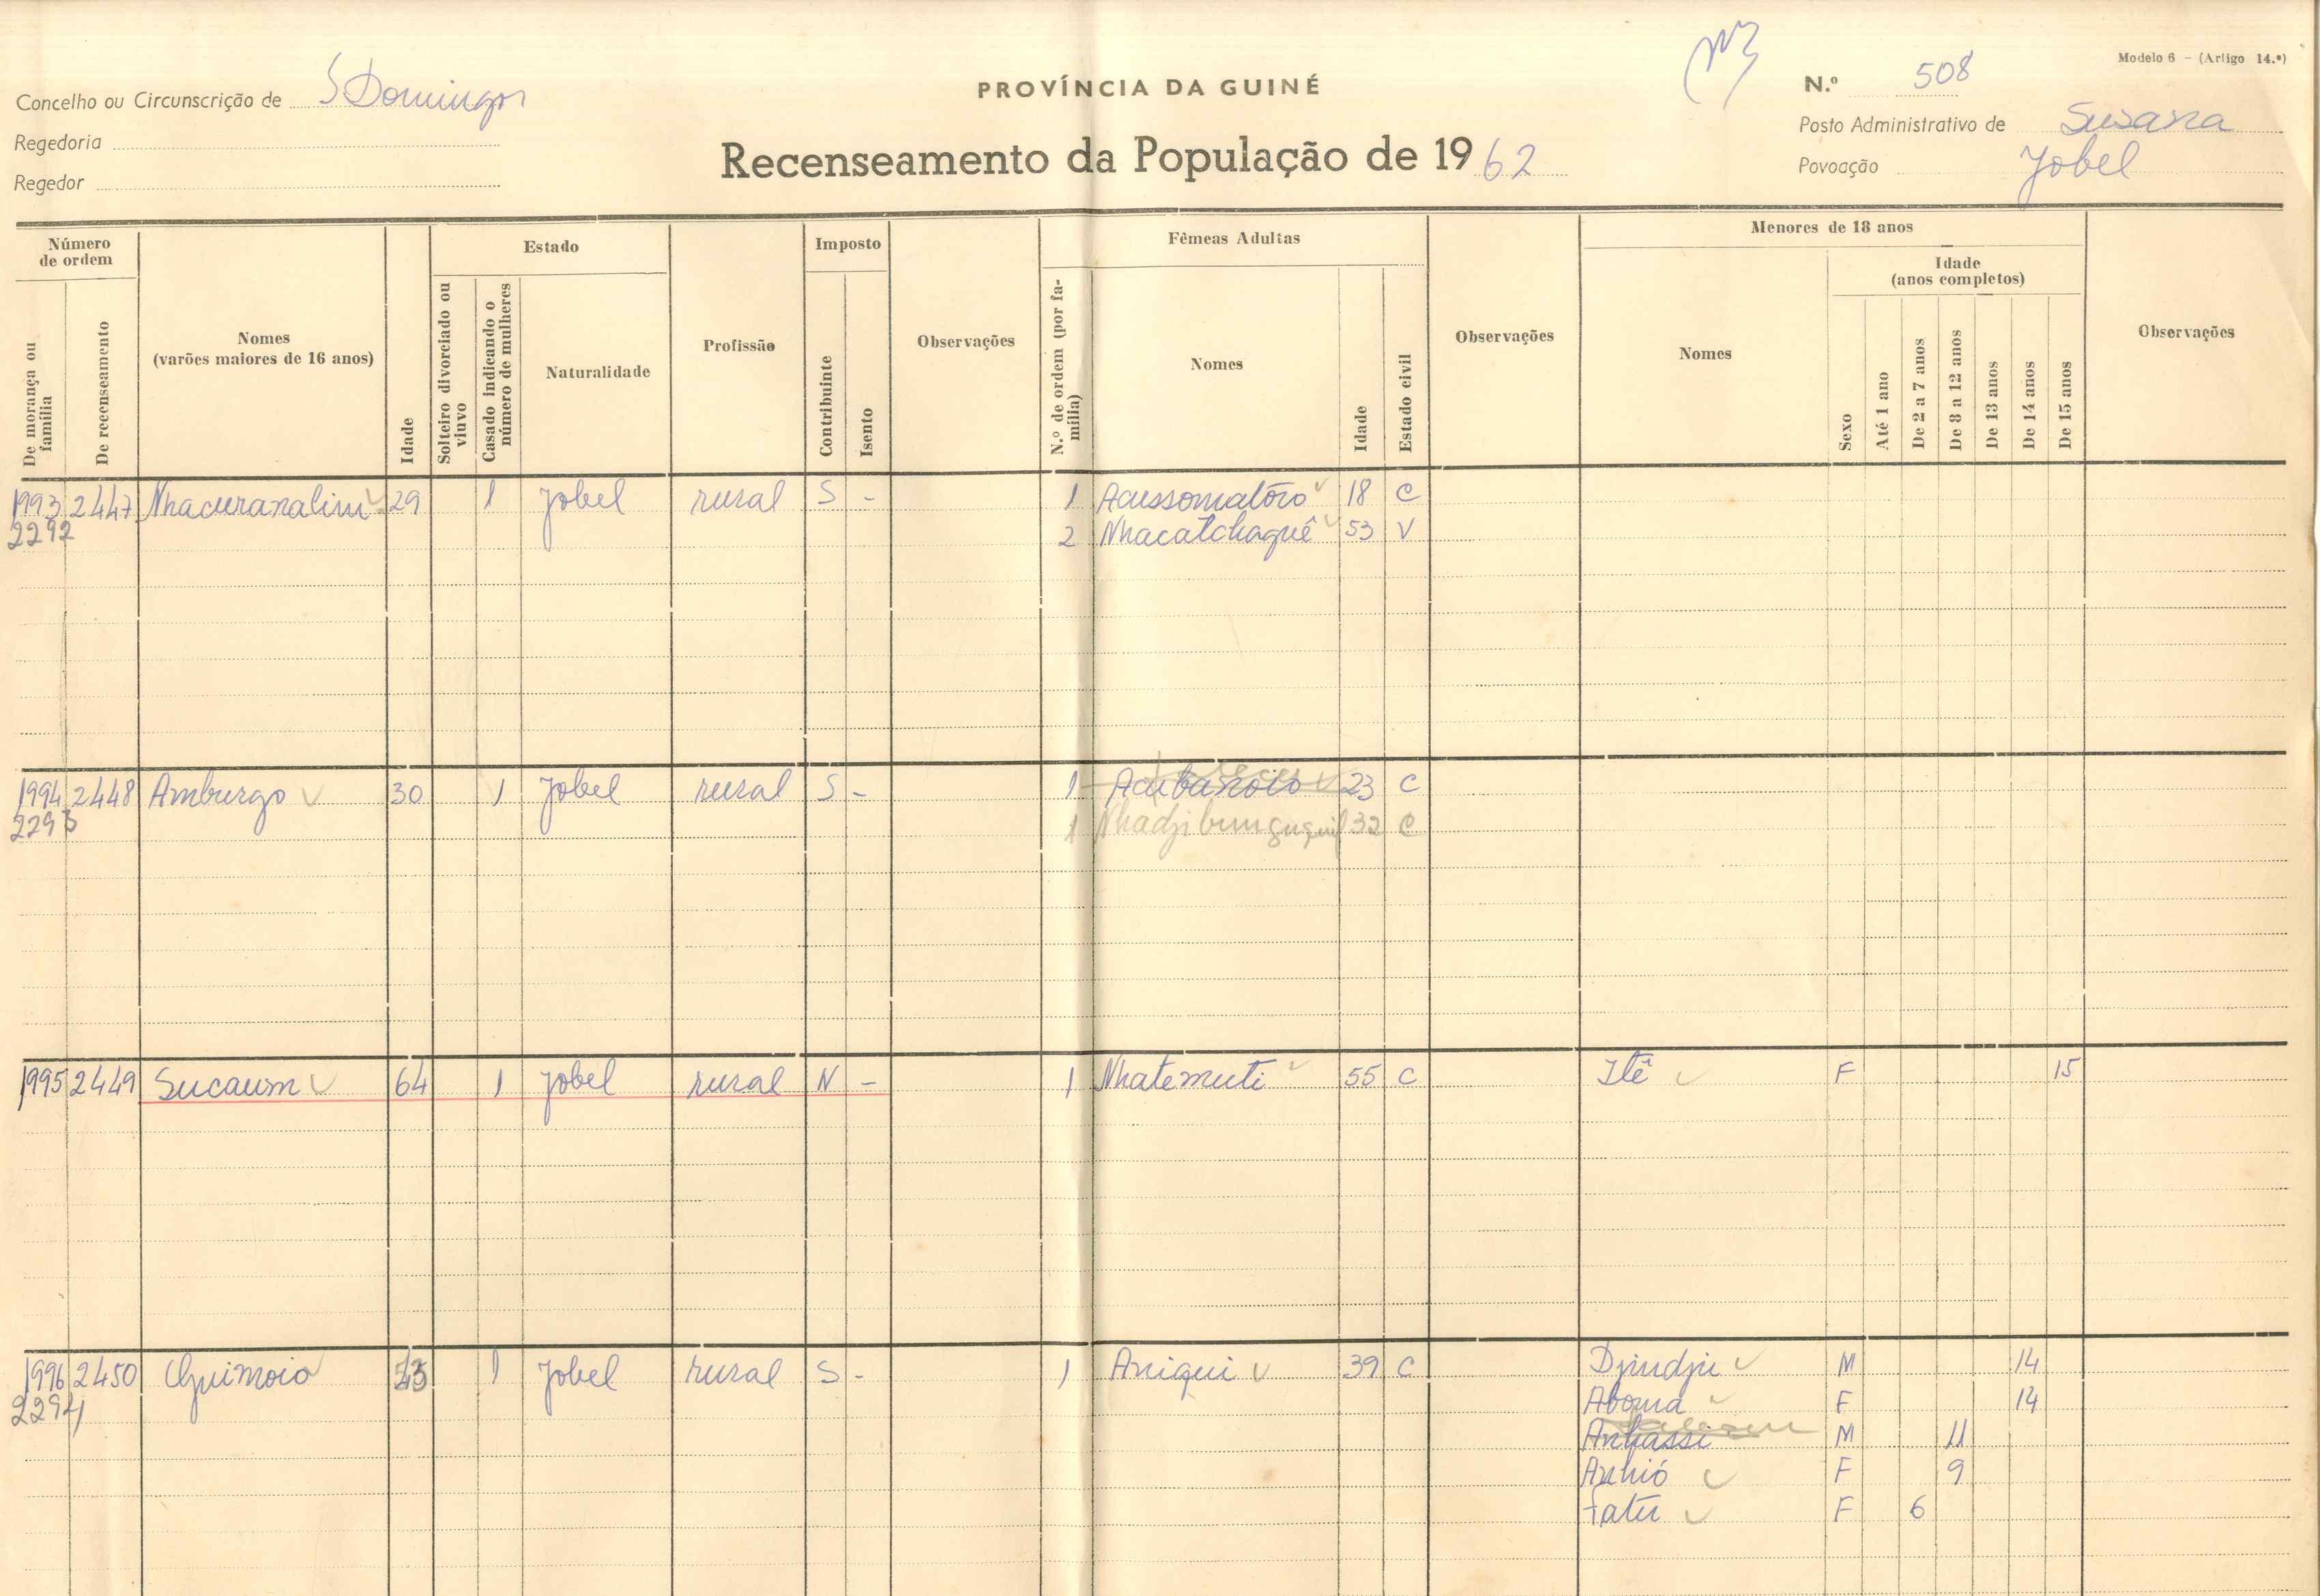 Modelo 6 - (Artigo 14.º)
PROVÍNCIA DA GUINÉ
N.º 508
Concelho ou Circunscrição de S Domingos
Posto Administrativo de Susana
Regedoria
Recenseamento da População de 1962
Povoação Jobel
Regedor
Número de ordem
De morança ou família
De recenseamento
Nomes
(varões maiores de 16 anos)
Idade
Estado
Solteiro divorciado ou viuvo
Casado indicando o número de mulheres
Naturalidade
Profissão
Imposto
Contribuinte
Isento
Observações
Fêmeas Adultas
N.º de ordem (por família)
Nomes
Idade
Estado civil
Observações
Menores de 18 anos
Nomes
Sexo
Idade
(anos completos)
Até 1 ano
De 2 a 7 anos
De 8 a 12 anos
De 13 anos
De 14 anos
De 15 anos
Observações
1993 2447 Nhacuranalim 29 1 Jobel rural S - 1 Acussomatôro 18 C
2292 2 Nhacatchaquê 53 V
1994 2448 Amburgo 30 1 Jobel rural S - 1 23 C
2293 1 32 C
1995 2449 Sucaum 64 1 Jobel rural N - 1 Nhatemuti 55 C Itê F 15
1996 2450 Quimoio 1 Jobel rural S - 1 Aniqui 39 C Djindju M 14
2294 Aboma F 14
Anhassi M 11
Anhió F 9
Fatu F 6